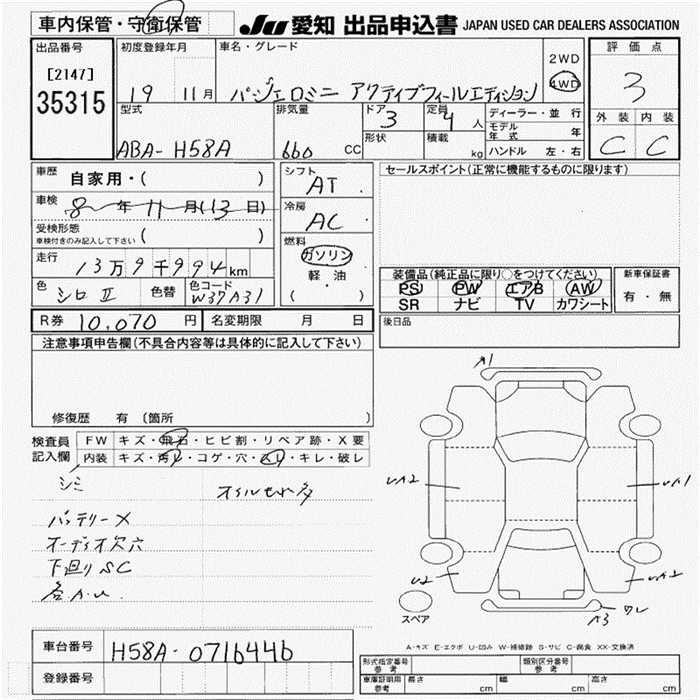 車内保管・守衛保管
JU 愛知 出品申込書 JAPAN USED CAR DEALERS ASSOCIATION
出品番号 初度登録年月 車名・グレード 2WD 評価点
[2147] 19 11月 パジェロミニ アクティブフィールエディション 4WD 3
35315 型式 排気量 ドア 3 定員 4人 ディーラー・並行 外装 内装
モデル年式 年
ABA-H58A 660 CC 形状 積載 kg ハンドル 左・右 C C
車歴 自家用・( ) シフト AT セールスポイント(正常に機能するものに限ります)
車検 8年11月(13日) 冷房 AC
受検形態 ( )
車検付きのみ記入して下さい 燃料
走行 13万9千994km ガソリン
軽油
( ・ )
装備品(純正品に限り○をつけてください) 新車保証書
色 シロⅡ 色替 色コード W37A31 PS PW エアB AW 有・無
SR ナビ TV カワシート
R券 10,070円 名変期限 月 日 後日品
注意事項申告欄(不具合内容等は具体的に記入して下さい)
A1
修復歴 有 〔箇所
検査員記入欄 FW キズ・飛石・ヒビ割・リペア跡・X要
内装 キズ・汚レ・コゲ・穴・スレ・キレ・破レ
シミ
UA2 UA1
バッテリーメ
オーディオ欠穴
下廻りSC
各A.U.
U2 UA2
ワレ
A3
スペア
車台番号 H58A-0716446
A-キズ E-エクボ U-凹み W-補修跡 S-サビ C-腐食 XX-交換済
登録番号
型式指定番号 参考 類別区分番号 参考
車庫証明用 参考 長さ cm 幅 cm 高さ cm